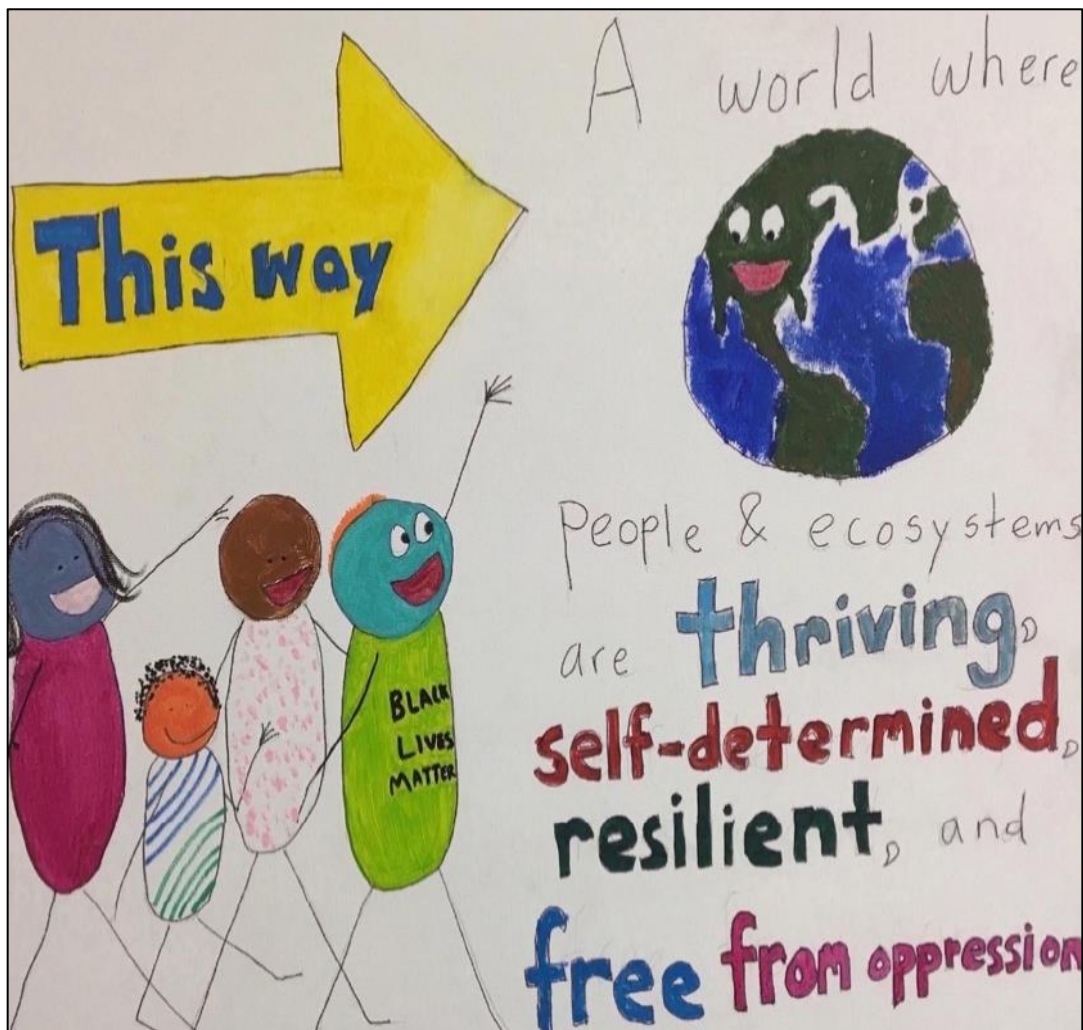 This way
A world where
people & ecosystems
are thriving,
self-determined,
resilient, and
free from oppression
BLACK
LIVES
MATTER